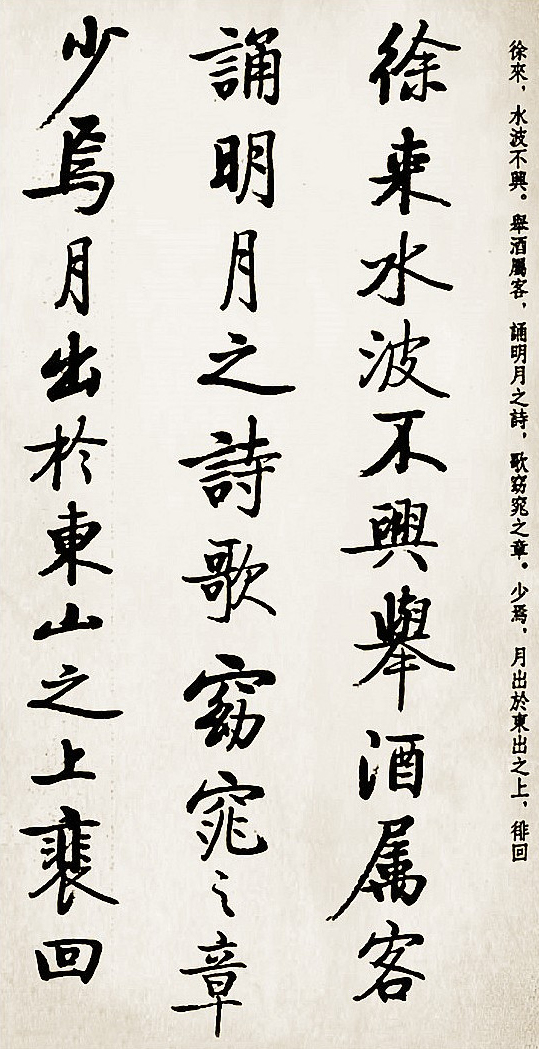 徐來，水波不興。舉酒屬客，誦明月之詩，歌窈窕之章。少焉，月出於東出之上，徘回
徐来水波不興舉酒属客
誦明月之詩歌窈窕之章
少焉月出於東山之上裴回